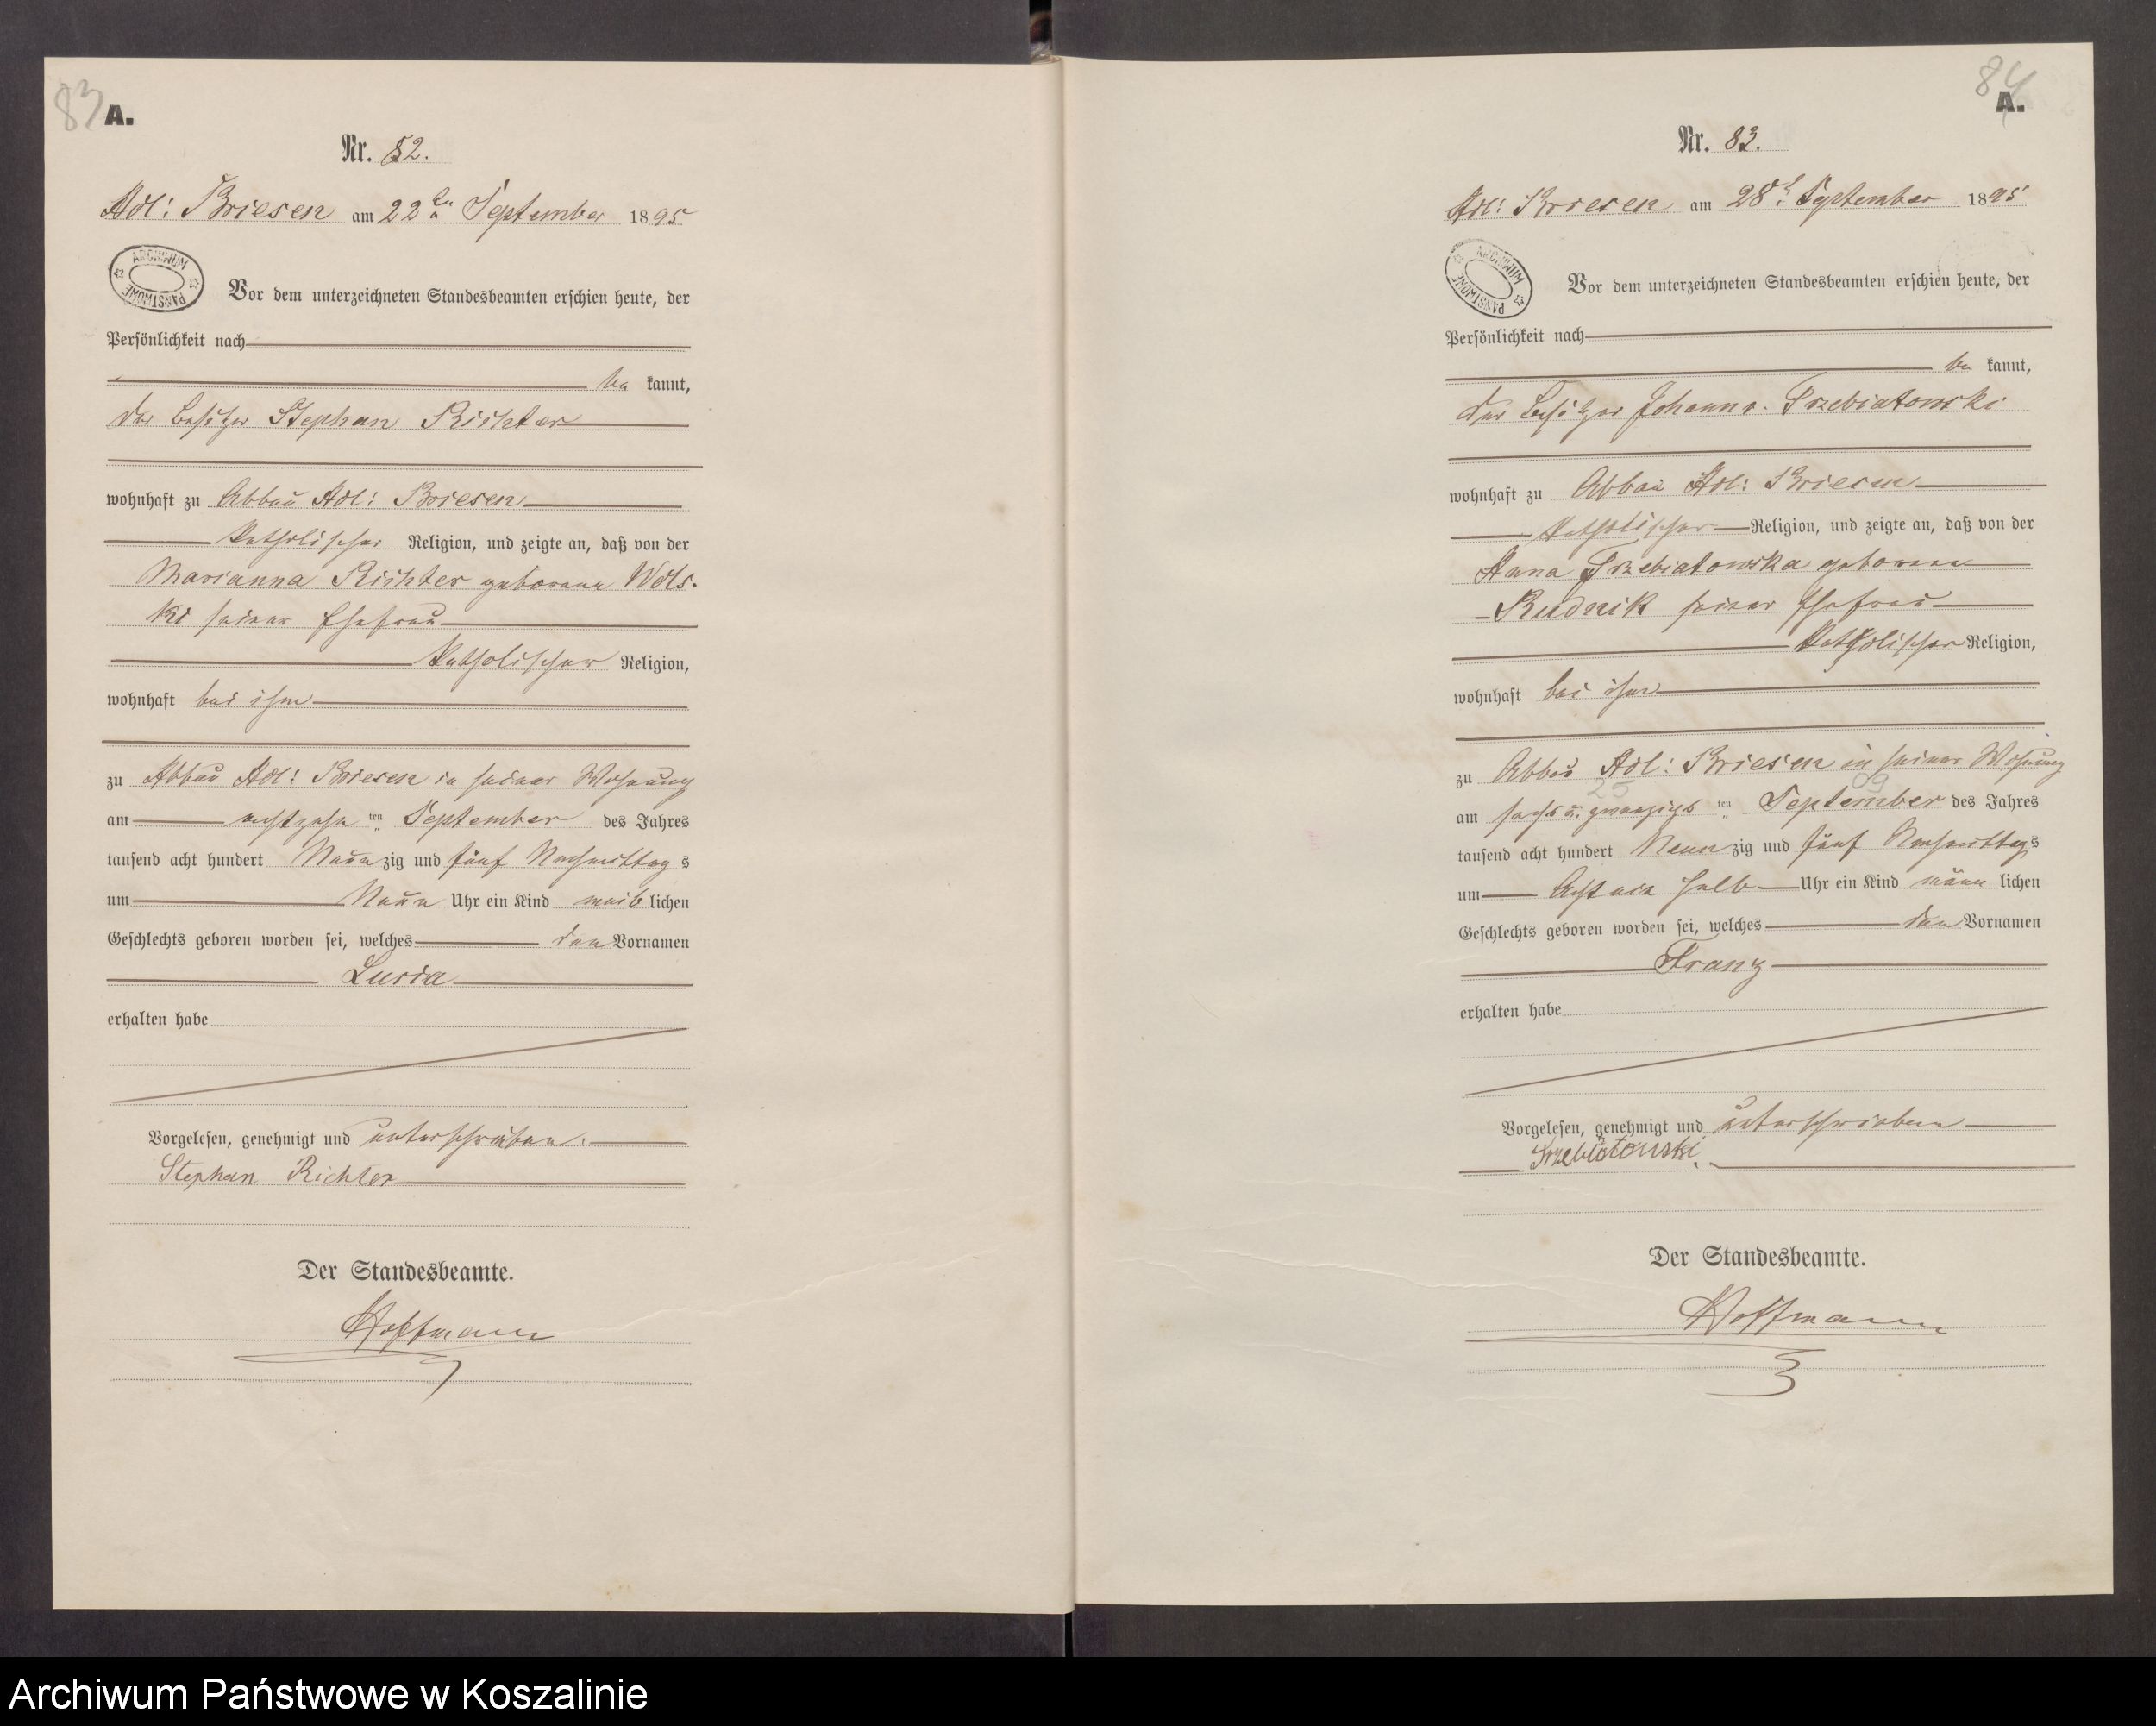 83
A.
Nr. 82.
Adl: Briesen am 22ten September 1895
ARCHIWUM PAŃSTWOWE
Vor dem unterzeichneten Standesbeamten erschien heute, der
Persönlichkeit nach
be kannt,
der Besitzer Stephan Richter
wohnhaft zu Abbau Adl: Briesen
katholischer Religion, und zeigte an, daß von der
Marianna Richter geborene Wols-
ki seiner Ehefrau
katholischer Religion,
wohnhaft bei ihm
zu Abbau Adl: Briesen in seiner Wohnung
am achtzehn ten September des Jahres
tausend acht hundert Neunzig und fünf Nachmittags
um Neun Uhr ein Kind weiblichen
Geschlechts geboren worden sei, welches den Vornamen
Lucia
erhalten habe
Vorgelesen, genehmigt und unterschrieben.
Stephan Richter
Der Standesbeamte.
Hoffmann
84
A.
Nr. 83.
Adl: Briesen am 28t September 1895
ARCHIWUM PAŃSTWOWE
Vor dem unterzeichneten Standesbeamten erschien heute, der
Persönlichkeit nach
be kannt,
der Besitzer Johann v. Trzebiatowski
wohnhaft zu Abbau Adl: Briesen
katholischer Religion, und zeigte an, daß von der
Anna Trzebiatowska geborene
Rudnik seiner Ehefrau
katholischer Religion,
wohnhaft bei ihm
zu Abbau Adl: Briesen in seiner Wohnung
25 09
am sechs u. zwanzigs ten September des Jahres
tausend acht hundert Neunzig und fünf Nachmittags
um Acht ein halb Uhr ein Kind männlichen
Geschlechts geboren worden sei, welches den Vornamen
Franz
erhalten habe
Vorgelesen, genehmigt und unterschrieben
Trzebiatowski.
Der Standesbeamte.
Hoffmann
Archiwum Państwowe w Koszalinie